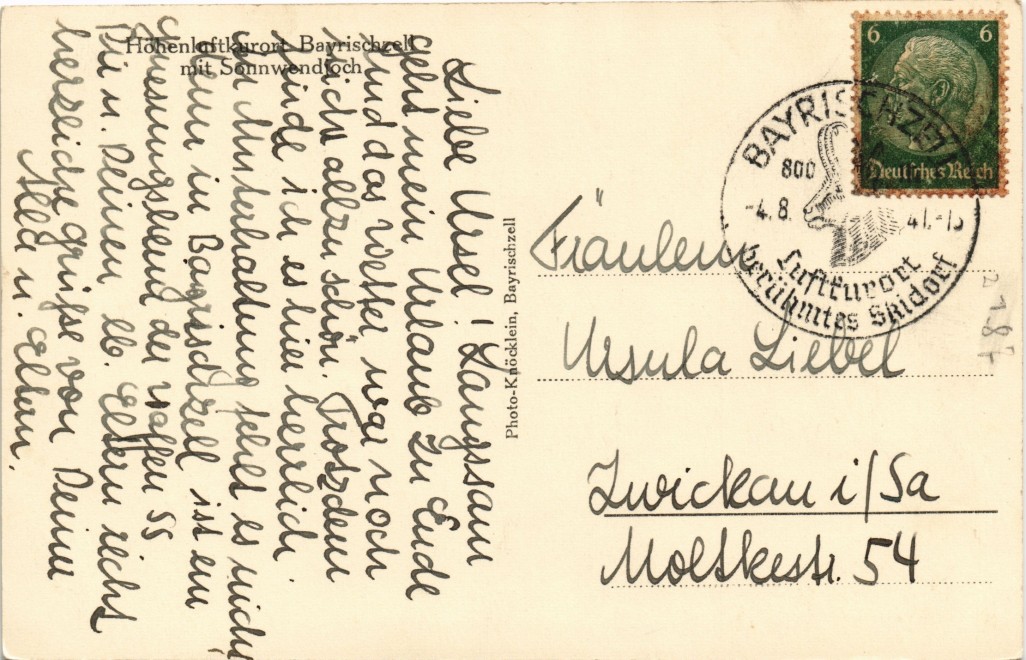 Höhenluftkurort Bayrischzell
mit Sonnwendjoch
Liebe Ursel! Langsam
geht mein Urlaub zu Ende
und das Wetter war noch
nicht allzu schön. Trotzdem
finde ich es hier herrlich.
An Unterhaltung fehlt es nicht
denn in Bayrischzell ist ein
Genesungsheim der Waffen SS
Dir u. Deinen lb. Eltern recht
herzliche Grüße von Deiner
Photo-Knöcklein, Bayrischzell
6 6
Deutsches Reich
BAYRISCHZELL
800
-4.8. 41.-15
Luftkurort
Berühmtes Skidorf
Fräulein
Ursula Liebel
Zwickau i/Sa
Moltkestr. 54